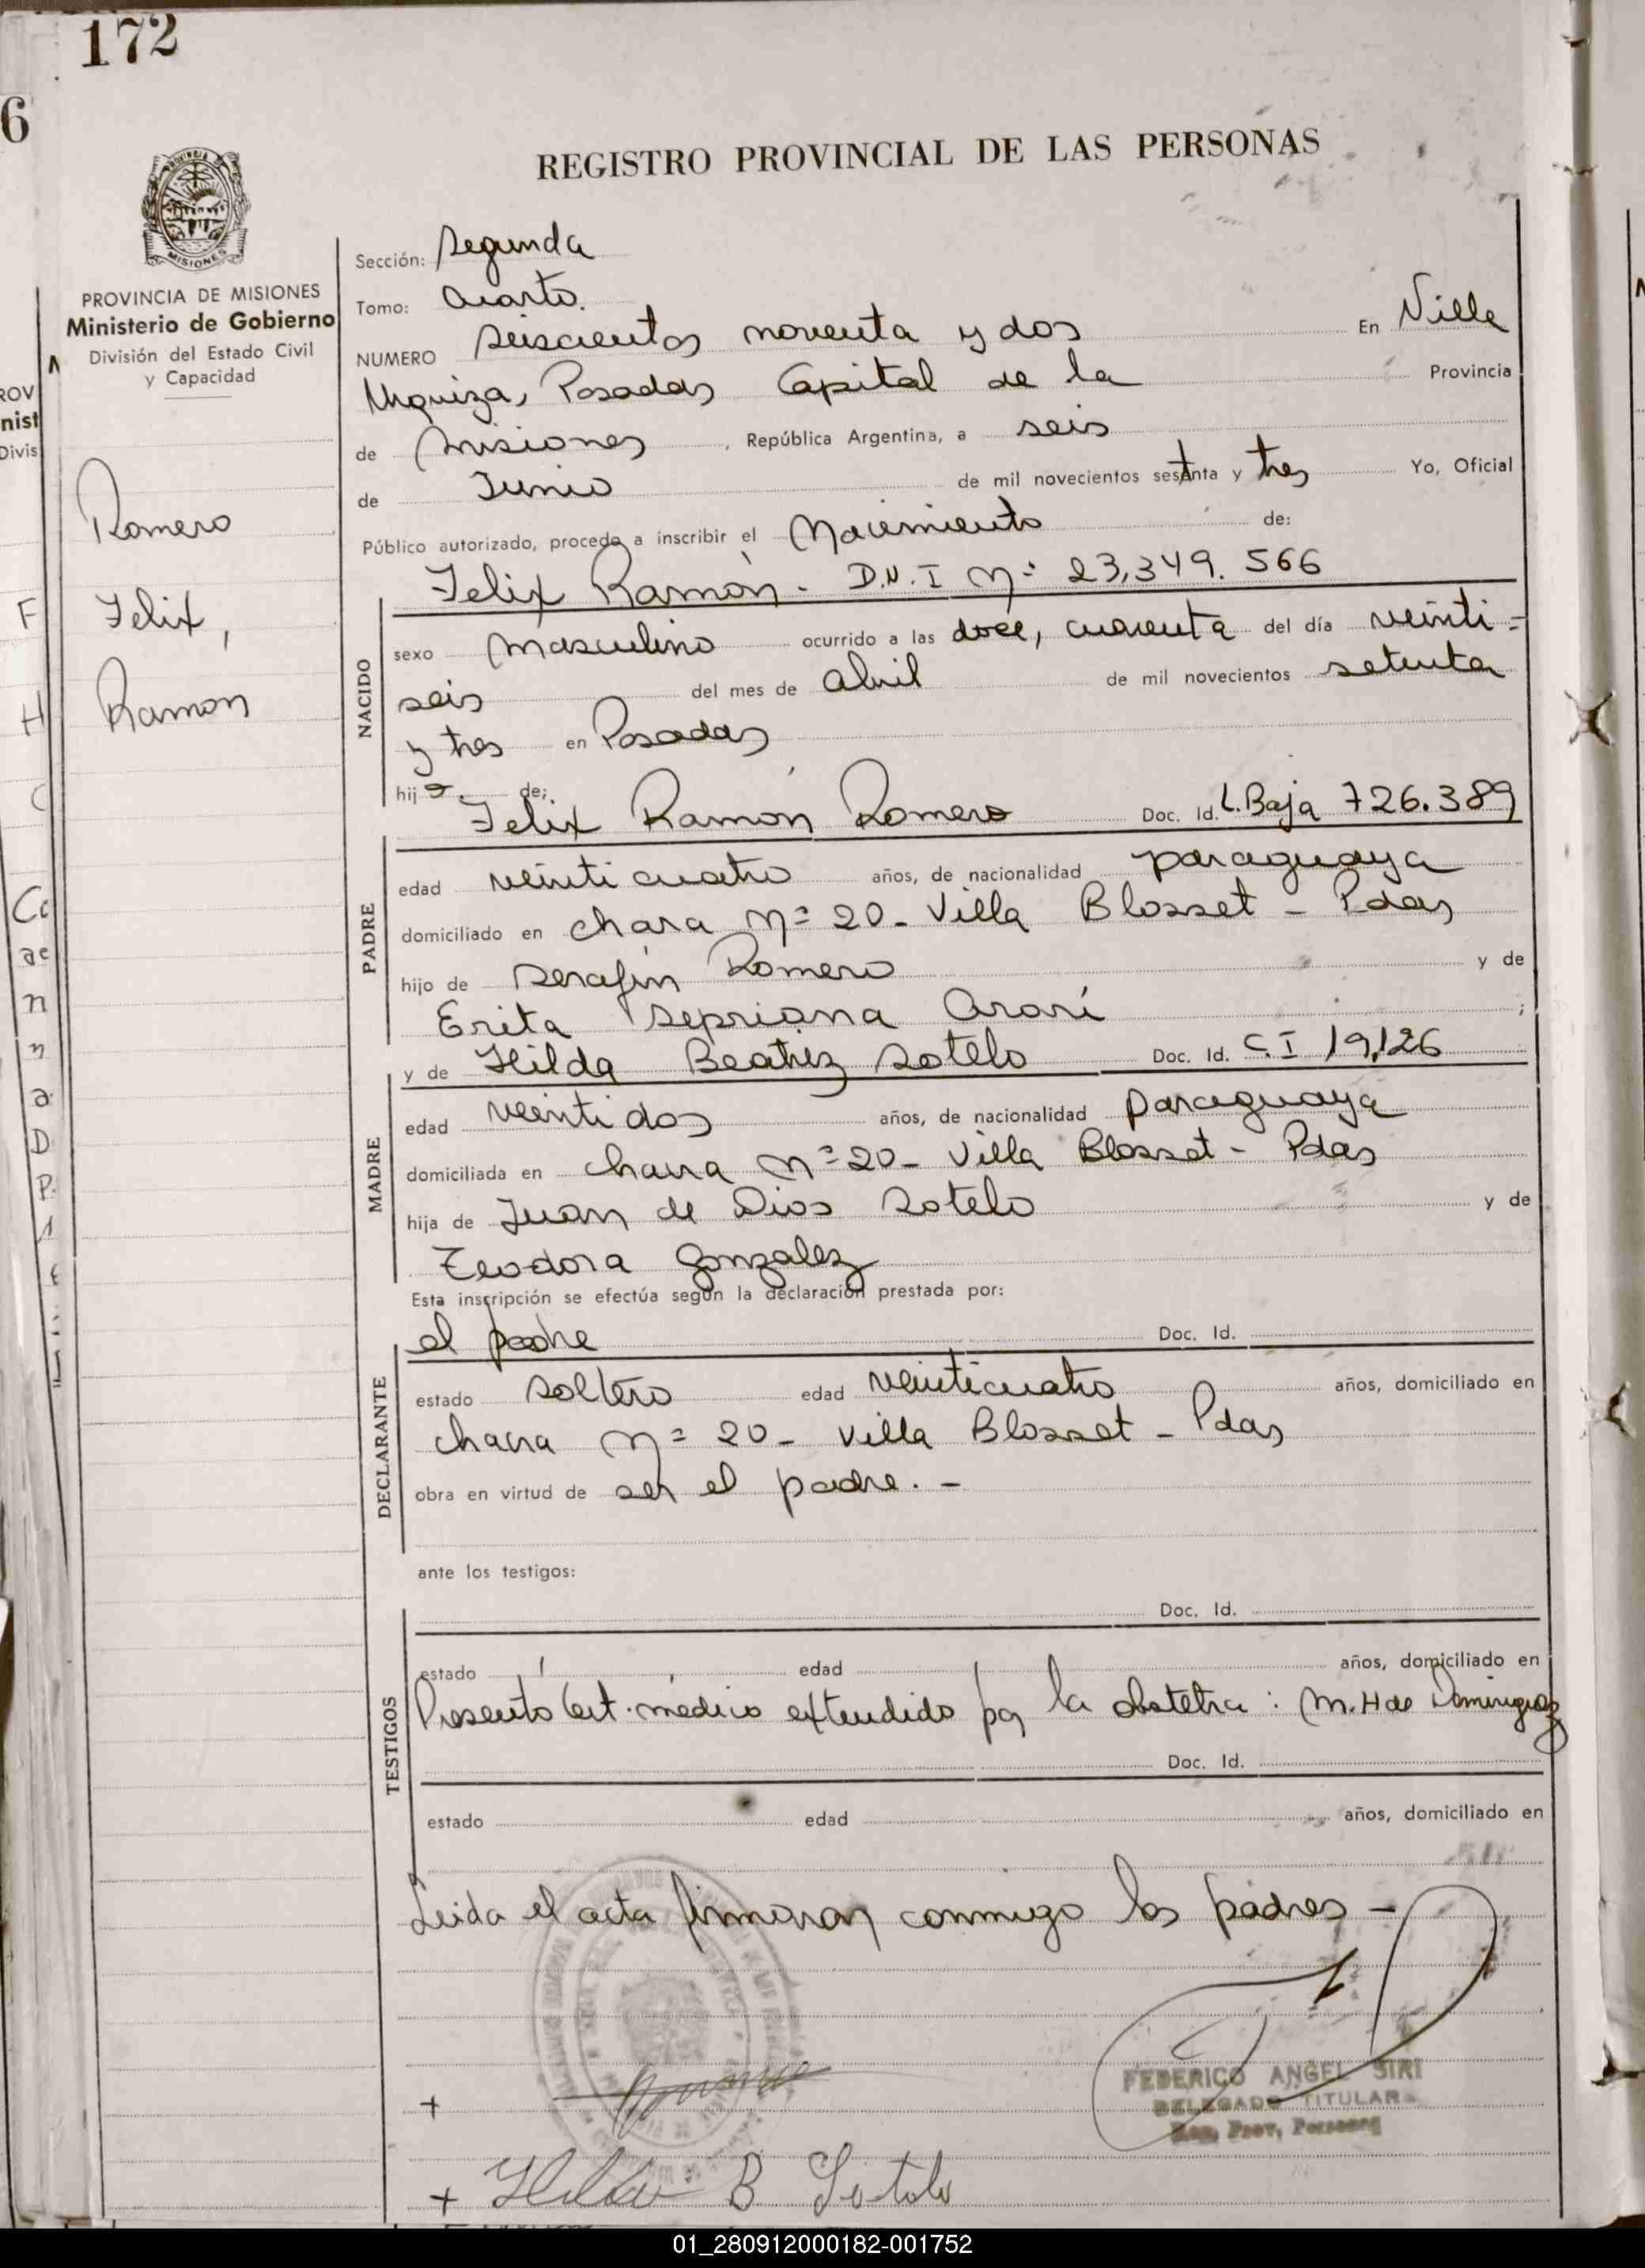 172
6
REGISTRO PROVINCIAL DE LAS PERSONAS
MISIONES
PROVINCIA DE MISIONES
Ministerio de Gobierno
División del Estado Civil
y Capacidad
Romero
Felix,
Ramon
Sección: Segunda
Tomo: Cuarto.
NUMERO Seiscientos noventa y dos En Villa
Urquiza, Posadas Capital de la Provincia
de Misiones, República Argentina, a seis
de Junio de mil novecientos setenta y tres Yo, Oficial
Público autorizado, procedo a inscribir el Nacimiento de:
Felix Ramón - D.N.I Nº 23,349.566
NACIDO
sexo Masculino ocurrido a las doce, cuarenta del día veinti=
seis del mes de abril de mil novecientos setenta
y tres en Posadas
hijo de;
Felix Ramón Romero Doc. Id. L.Baja 726.389
PADRE
edad veinticuatro años, de nacionalidad paraguaya
domiciliado en chara Nº 20- Villa Blosset - Pdas
hijo de Serafín Romero y de
Erita Sepriana ;
y de Hilda Beatriz Sotelo Doc. Id. C.I 19,126
MADRE
edad veintidos años, de nacionalidad paraguaya
domiciliada en chara Nº 20- Villa Blosset - Pdas
hija de Juan de Dios Sotelo y de
Teodora Gonzalez
Esta inscripción se efectúa según la declaración prestada por:
el padre Doc. Id.
DECLARANTE
estado soltero edad veinticuatro años, domiciliado en
chara Nº 20- Villa Blosset - Pdas
obra en virtud de ser el padre. -
ante los testigos:
Doc. Id.
TESTIGOS
estado edad años, domiciliado en
Presentó Cert. médico extendido por la obstetra: M.H de Dominguez
Doc. Id.
estado edad años, domiciliado en
Leida el acta firmaron conmigo los padres -
FEDERICO ANGEL SIRI
DELEGADO TITULAR
Reg. Prov. Personas
+
+ Hilda B Sotelo
01_280912000182-001752